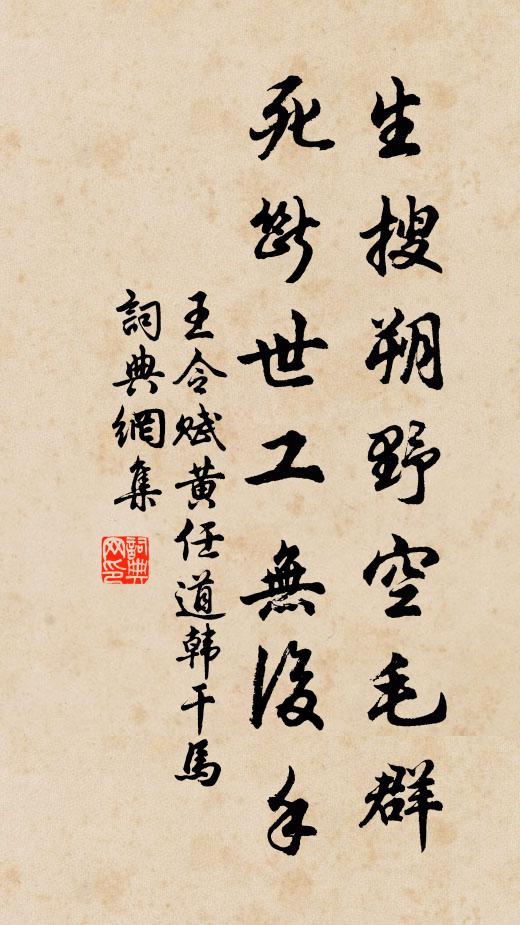 生搜朔野空毛群
死斷世工無後手
王令賦黄任道韩干馬
詞典網集
詞典網印